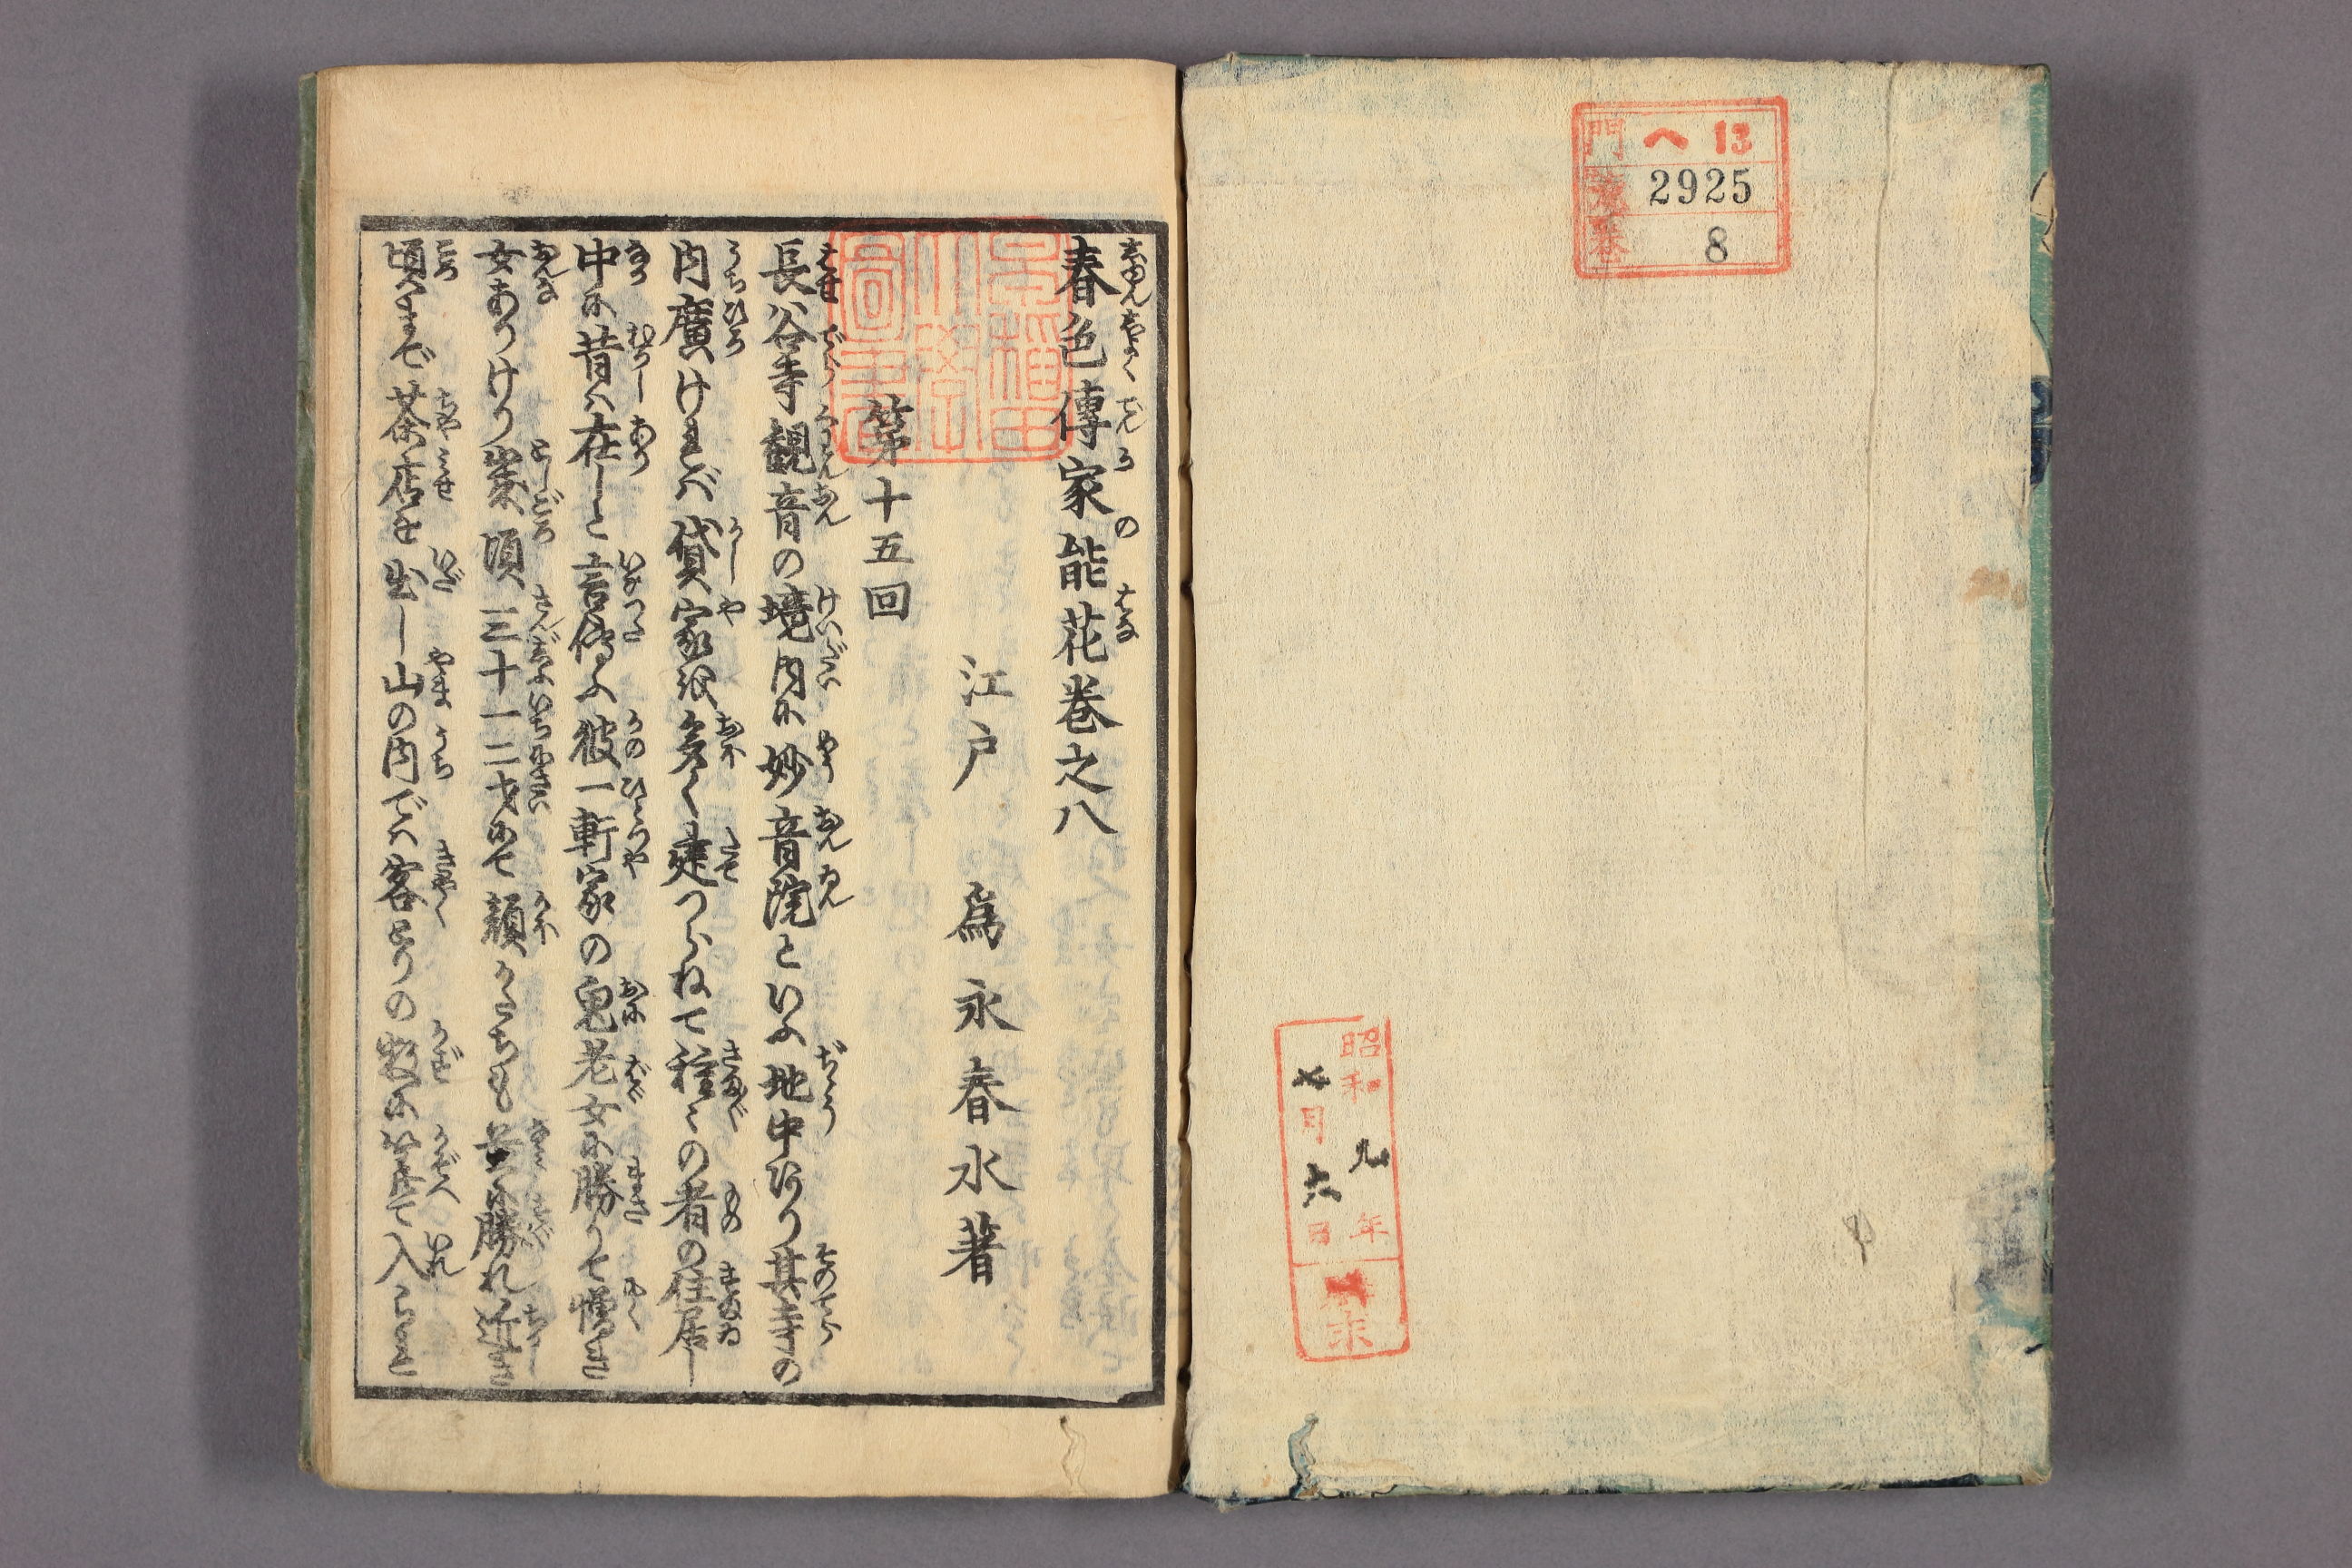 門 ヘ 13
2925
8
昭和 九年
七月六日
購求
春色傳家能花巻之八
江戸 為永春水著
早稲田大學圖書
第十五回
長谷寺観音の境内に妙音院といふ地中あり其寺の
内廣ければ貸家数多く建つらねて種々の者の住居し
中に昔は在しと言傳ふ彼一軒家の鬼老女に勝りて憎き
女ありけり歳頃三十一二才にて顔かたちも勝れ
頃まで茶店を出し山の内では客とりの数に算て入られ